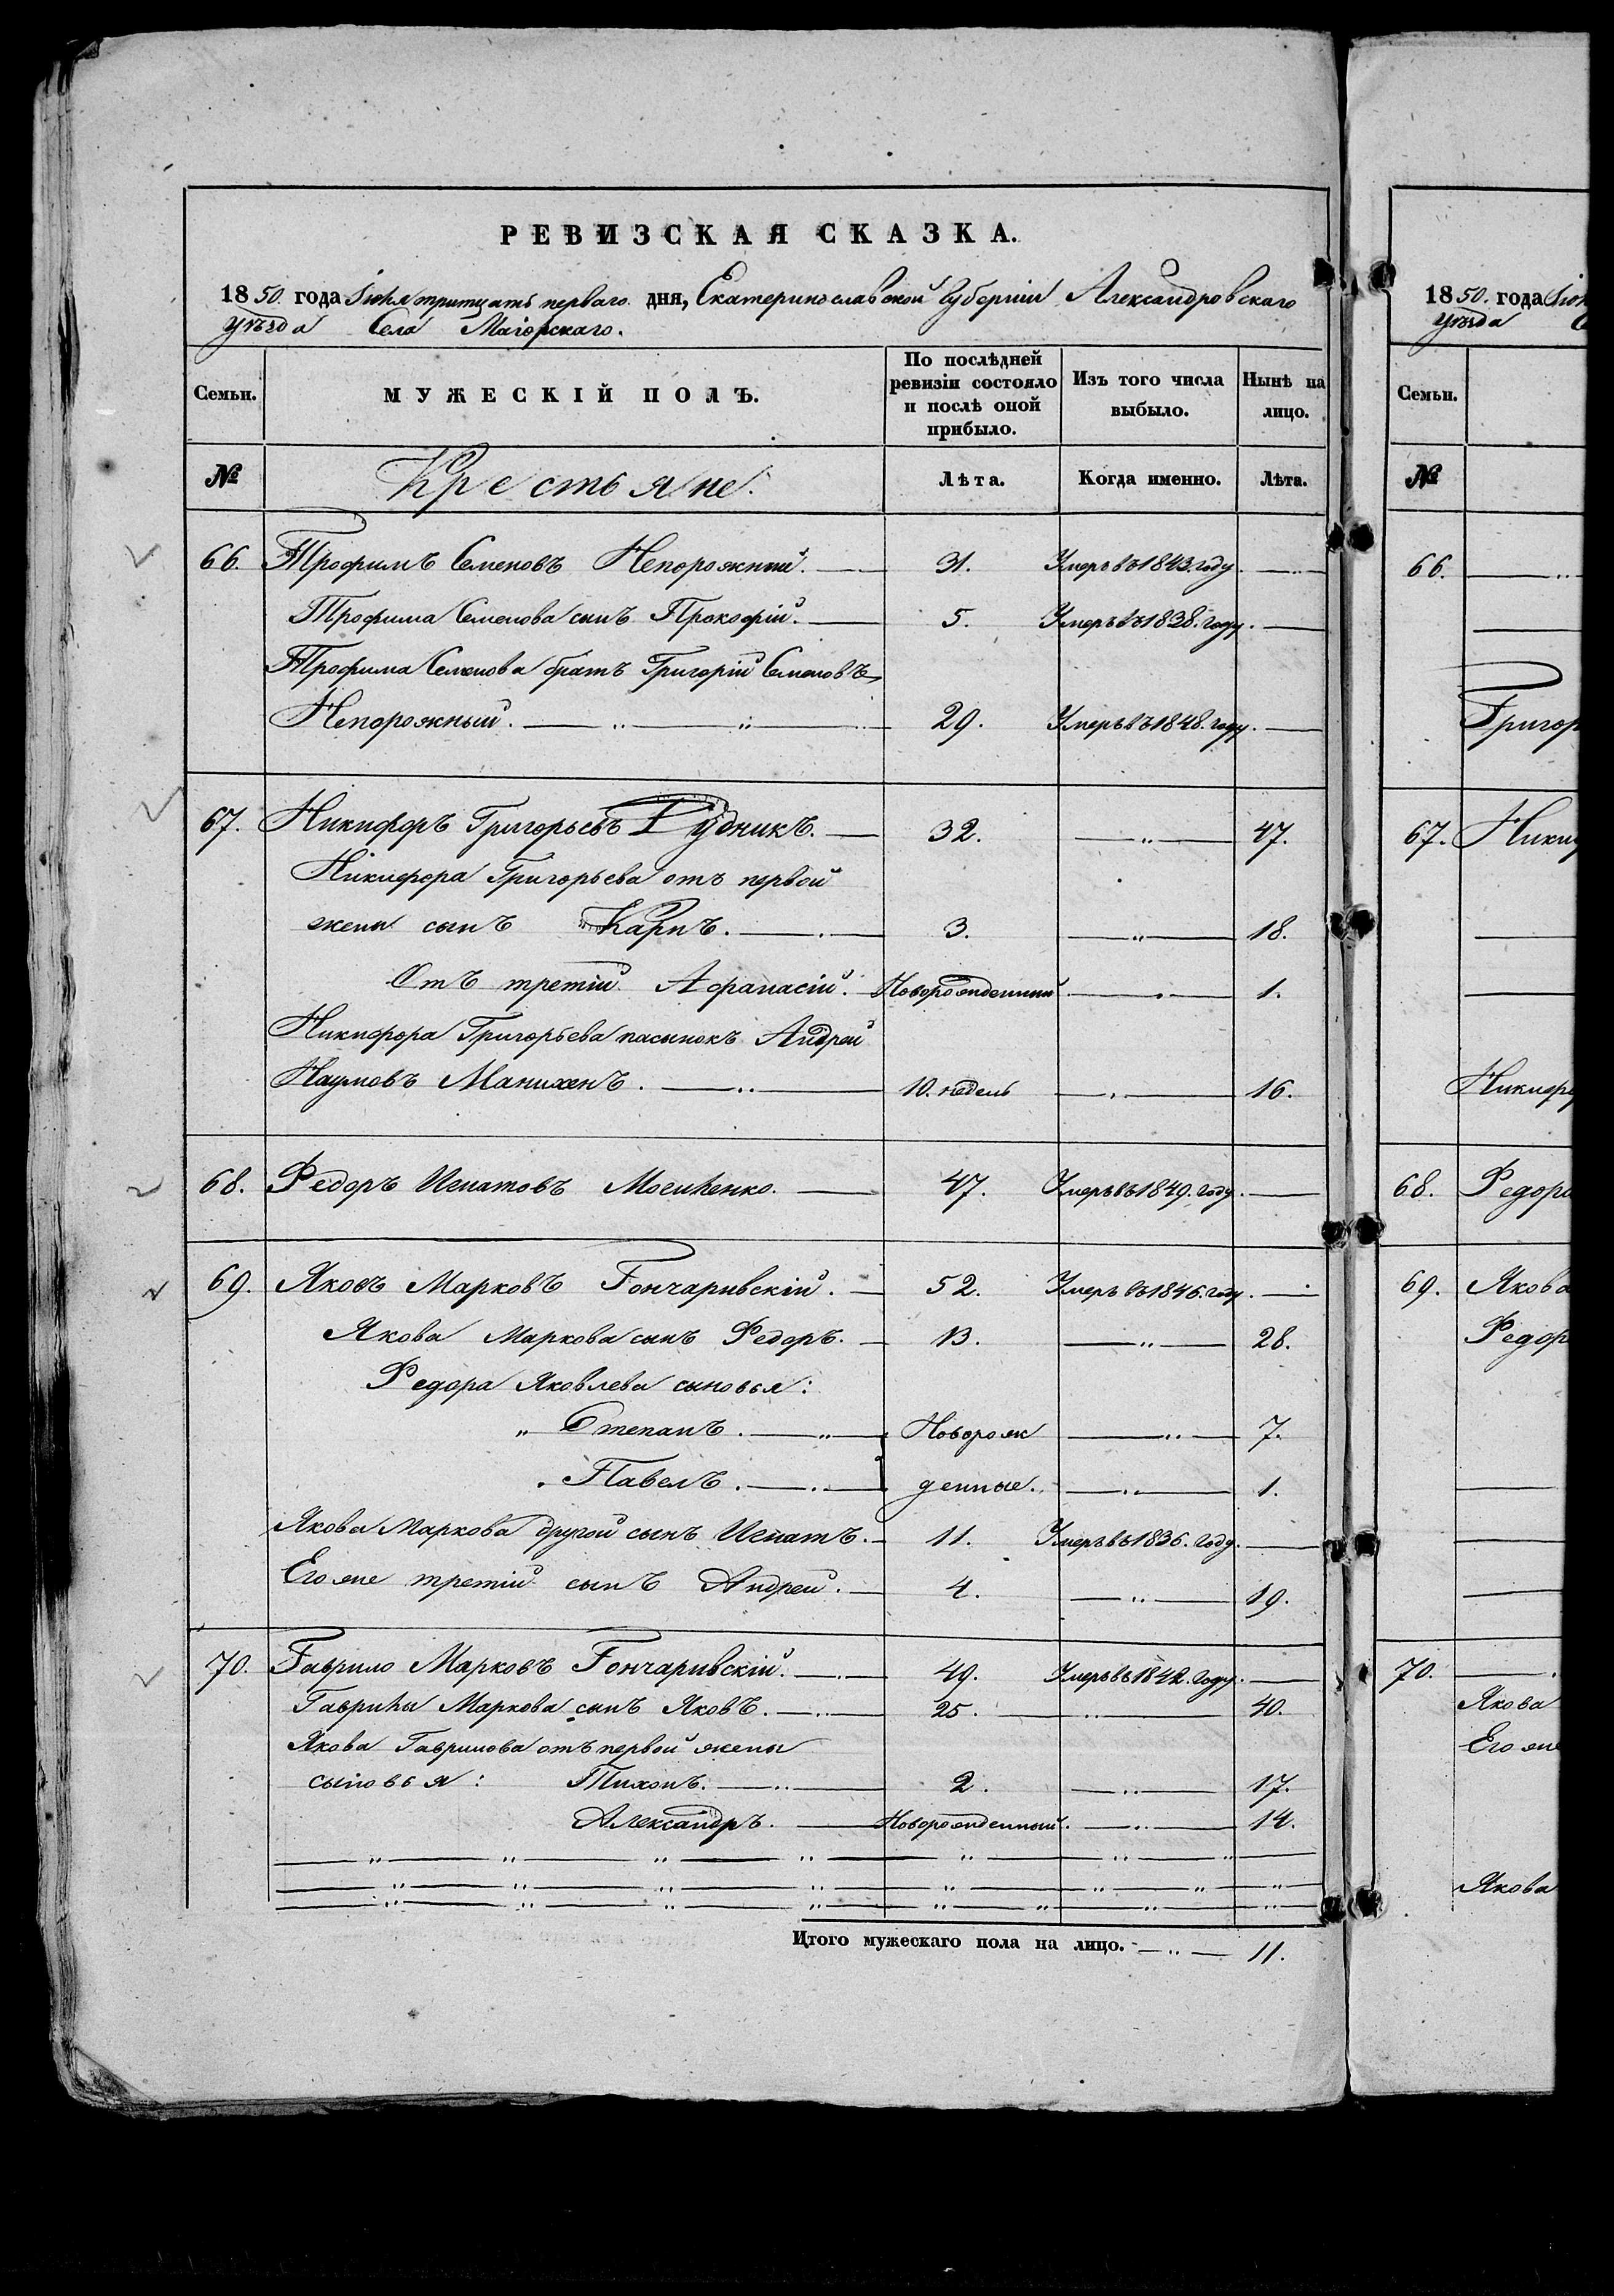 РЕВИЗСКАЯ СКАЗКА.
1850. года Іюля тритцать перваго дня, Екатеринославской Губерніи Александровскаго
Уѣзда Села Маіорскаго.
Семьи. МУЖЕСКІЙ ПОЛЪ. По послѣдней ревизіи состояло и послѣ оной прибыло. Изъ того числа выбыло. Нынѣ на лицо.
№ Крестьяне. Лѣта. Когда именно. Лѣта.
66. Трофимъ Семеновъ Непорожний. 31. Умеръ въ 1843. году.
Трофима Семенова сынъ Прокофій. 5. Умеръ въ 1838. году.
Трофима Семенова братъ Григорій Семеновъ
Непорожный. 29. Умеръ въ 1848. году.
67. Никифоръ Григорьевъ Рудникъ. 32. 47.
Никифора Григорьева отъ первой
жены сынъ Карпъ. 3. 18.
Отъ третій Афанасій. Новорожденный 1.
Никифора Григорьева пасынокъ Андрей
Наумовъ Манихенъ. 10. недель 16.
68. Федоръ Игнатовъ Мосиенко. 47. Умеръ въ 1849. году.
69. Яковъ Марковъ Гончаривскій. 52. Умеръ въ 1846. году.
Якова Маркова сынъ Федоръ. 13. 28.
Федора Яковлева сыновья:
Степанъ. Новорож 7.
Павелъ. денные. 1.
Якова Маркова другой сынъ Игнатъ. 11. Умеръ въ 1836. году.
Его же третій сынъ Андрей. 4. 19.
70. Гаврило Марковъ Гончаривскій. 49. Умеръ въ 1842. году.
Гаврилы Маркова сынъ Яковъ. 25. 40.
Якова Гаврилова отъ первой жены
сыновья: Тихонъ. 2. 17.
Александръ. Новорожденный. 14.
Итого мужескаго пола на лицо. 11.
1850. года
Уѣзда
Семьи.
№
66.
Григор
67. Ники
Никифо
68. Федора
69. Якова
Федор
70.
Якова
Его же
Якова